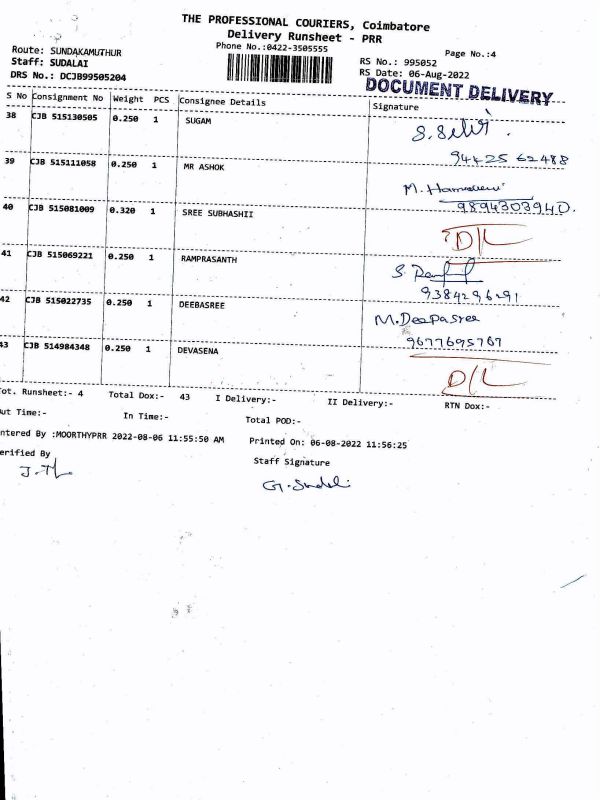 THE PROFESSIONAL COURIERS, Coimbatore
Delivery Runsheet - PRR
Phone No.:0422-3505555
Page No.:4
Route: SUNDAKAMUTHUR
Staff: SUDALAI
DRS No.: DCJB99505204
RS No.: 995052
RS Date: 06-Aug-2022
DOCUMENT DELIVERY
S No Consignment No Weight PCS Consignee Details Signature
38 CJB 515130505 0.250 1 SUGAM
94425 62488
39 CJB 515111058 0.250 1 MR ASHOK
9894303940.
40 CJB 515081009 0.320 1 SREE SUBHASHII
D/L
41 CJB 515069221 0.250 1 RAMPRASANTH
9384296291
42 CJB 515022735 0.250 1 DEEBASREE M.Deepasree
9677695767
43 CJB 514984348 0.250 1 DEVASENA
D/L
Tot. Runsheet:- 4 Total Dox:- 43 I Delivery:- II Delivery:- RTN Dox:-
ut Time:- In Time:- Total POD:-
ntered By :MOORTHYPRR 2022-08-06 11:55:50 AM Printed On: 06-08-2022 11:56:25
erified By Staff Signature